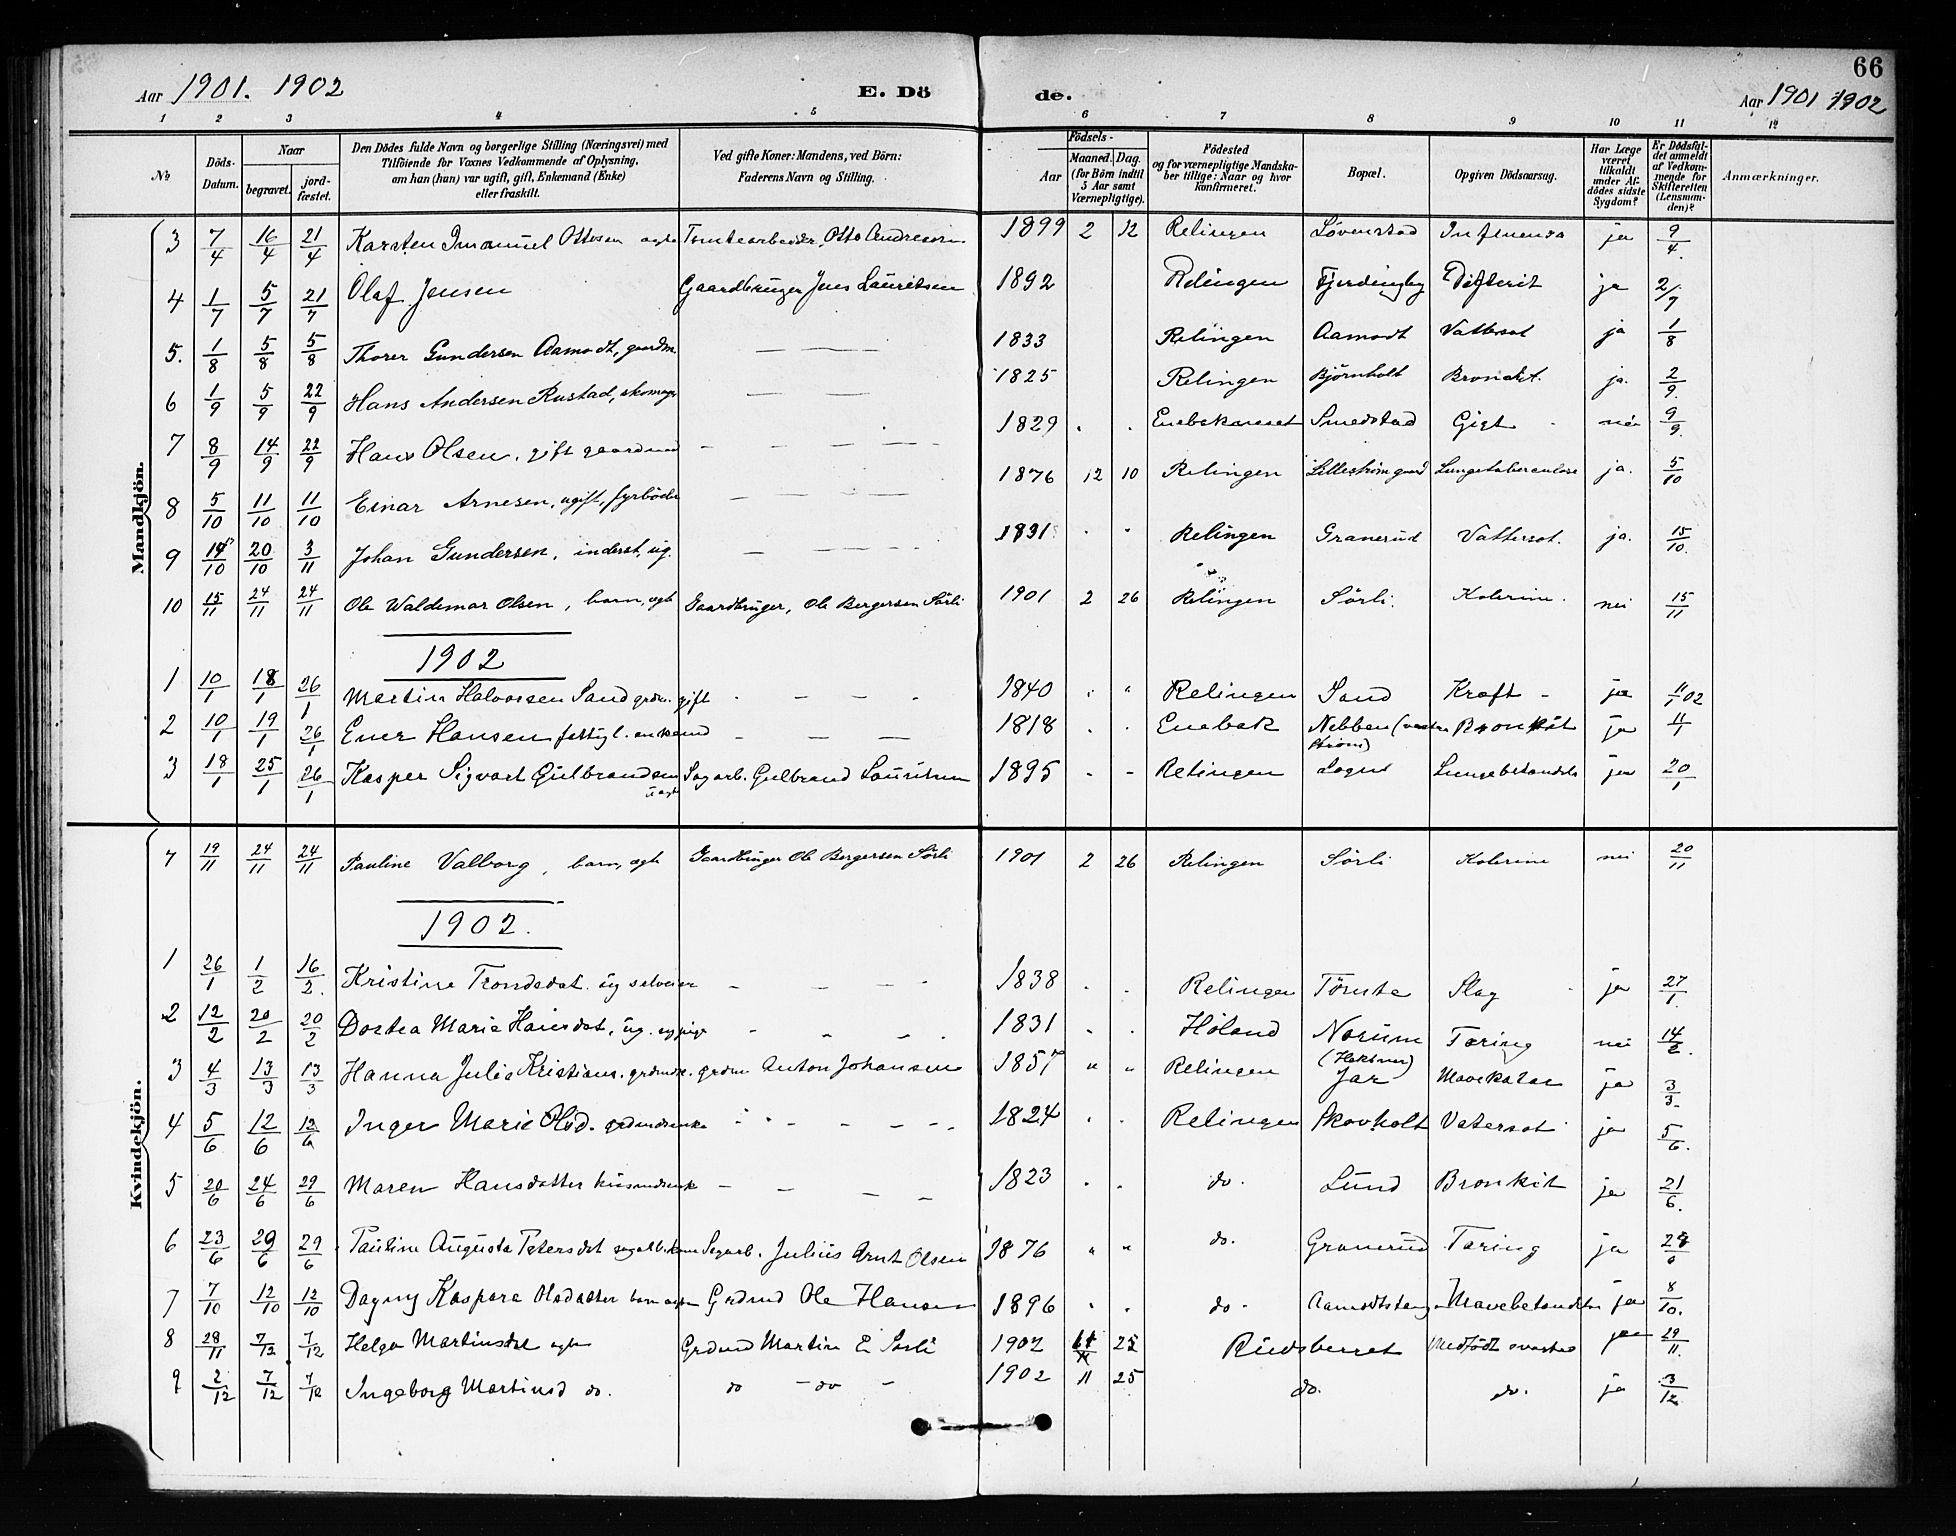 66
Aar 1901. 1902 E. Döde. Aar 1901 1902
1 2 3 4 5 6 7 8 9 10 11 12
No Döds-Datum. Naar begravet. jordfæstet. Den Dödes fulde Navn og borgerlige Stilling (Næringsvei) med Tilföiende for Voxnes Vedkommende af Oplysning, om han (hun) var ugift, gift, Enkemand (Enke) eller fraskilt. Ved gifte Koner: Mandens, ved Börn: Faderens Navn og Stilling. Födsels- Aar Maaned. Dag. (for Börn indtil 5 Aar samt Værnepligtige). Födested og for værnepligtige Mandskaber tillige: Naar og hvor konfirmeret. Bopæl. Opgiven Dödsaarsag. Har Læge været tilkaldt under Afdödes sidste Sygdom? Er Dödsfaldet anmeldt af Vedkommende for Skifteretten (Lensmanden)? Anmærkninger.
Mandkjön.
3 7/4 16/4 21/4 Karsten Imanuel Ottesen ægte Tomtearbeider Otto Andresen 1899 2 12 Relingen Lövenstad Influensa ja 9/4.
4 1/7 5/7 21/7 Olaf Jensen Gaardbruger Jens Lauritsen 1892 Relingen Fjerdingby Difterit ja 2/7
5. 1/8 5/8 5/8 Thorer Gundersen Aamodt, gaardm. — — — 1833 Relingen Aamodt Vattersot ja 1/8
6 1/9 5/9 22/9 Hans Andersen Rustad, skomager — — — 1825 Relingen Björnholt Bronchit. ja. 2/9.
7 8/9 14/9 22/9 Hans Olsen, gift gaardmd - — — — 1829 . . Enebaknesset Smedstad Gigt - nei 9/9.
8 5/10 11/10 11/10 Einar Arnesen, ugift, fyrböder — — — — 1876 12 10 Relingen Lilleström gaard Lungetuberculose ja. 5/10
9 14/10 20/10 3/11 Johan Gundersen, inderst, ug. — — — — 1831 . " Relingen Granerud Vattersot. ja. 15/10.
10 15/11 24/11 24/11 Ole Waldemar Olsen, barn, ægte Gaardbruger, Ole Bergersen Sörli 1901 2 26 Relingen Sörli. Kolerine. nei 15/11
1902
1 10/1 18/1 26/1 Martin Halvorsen Sand grdm. gift - — - - 1840 . " Relingen Sand Kræft - ja 11/1 02
2 10/1 19/1 26/1 Ener Hansen fattigl. enkemd — — — 1818 . . Enebak Nebben (vestre Ström) Bronkit ja 11/1
3 18/1 25/1 26/1 Kasper Sigvart Gulbrandsen uægte Sagarb. Gulbrand Lauritsen 1895 - - Relingen Lund ja 20/1
Kvindekjön.
7 19/11 24/11 24/11 Pauline Valborg, barn, ægte Gaardbruger Ole Bergersen Sörli 1901 2 26 Relingen Sörli Kolerine nei 20/11
1902.
1 26/1 1/2 16/2. Kristine Trondsdat. ug selveier - — - - 1838 . . Relingen Tömte Slag - ja 27/1.
2 12/2 20/2 20/2 Dortea Marie Hansdat, ug. - - - 1831 . . Höland Norum Tæring nei 14/2.
3 4/3 13/3 13/3 Hanna Julie Kristians. grdmdk. grdm Anton Johansen 1857 " " Relingen Jar Mavekatar ja 3/3.
4 5/6 12/6 12/6 Inger Marie Olsd. grdmdsenke - - - - - 1824 . . Relingen Skovholt Vatersot ja 5/6.
5 20/6 24/6 29/6 Maren Hansdatter husmdsenk — — — — 1823 . . do. Lund Bronkit ja 21/6.
6 23/6 29/6 29/6 Pauline Augusta Petersdt sagarb.kone Sagarb. Julius Arnt Olsen 1876 " " do. Granerud Tæring ja 28/6
7 7/10 12/10 12/10 Dagny Kaspara Olsdatter barn Grdmd Ole Hansen 1896 . . do - Mavebetændelse ja 8/10.
8 28/11 7/12 7/12 Helga Martinsdt ægte Grdmd Martin E Sörli 1902 11 25 Rudsberret Medfödt svaghed ja 29/11.
9 2/12 7/12 7/12 Ingeborg Martinsd do. do - do - 1902 11 25 do. do. ja 3/12